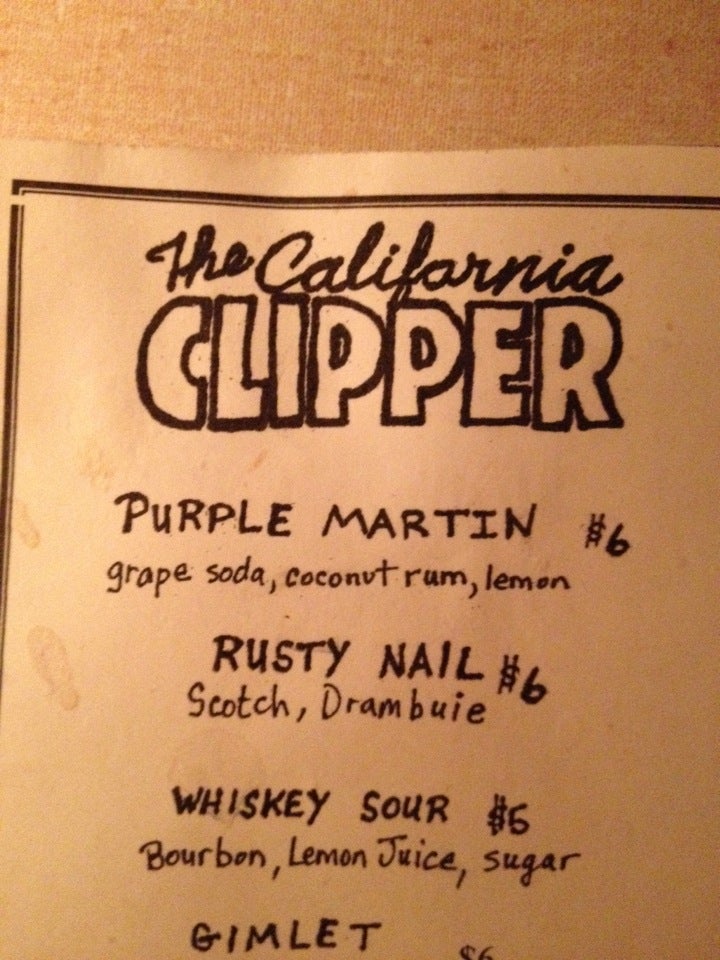 The California
CLIPPER
PURPLE MARTIN $6
grape soda, coconut rum, lemon
RUSTY NAIL $6
Scotch, Drambuie
WHISKEY SOUR $5
Bourbon, Lemon Juice, sugar
GIMLET $6